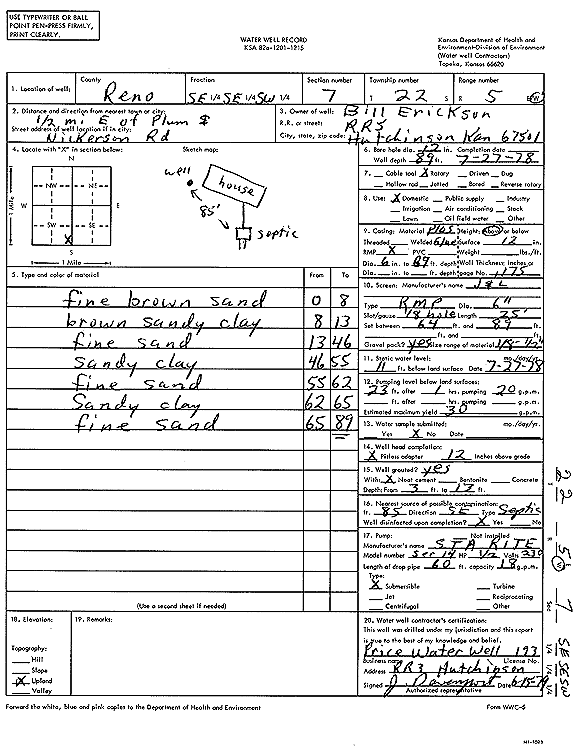 USE TYPEWRITER OR BALL
POINT PEN-PRESS FIRMLY,
PRINT CLEARLY.
WATER WELL RECORD
KSA 82a-1201-1215
Kansas Department of Health and
Environment-Division of Environment
(Water well Contractors)
Topeka, Kansas 66620
1. Location of well: County Reno Fraction SE 1/4 SE 1/4 SW 1/4 Section number 7 Township number T 22 S Range number R 5 E/W
2. Distance and direction from nearest town or city: 1/2 mi E of Plum &
Street address of well location if in city: Nickerson Rd
3. Owner of well: Bill Erickson
R.R. or street: RR5
City, state, zip code: Hutchinson Kan 67501
4. Locate with "X" in section below:
N
NW NE
W E
SW SE
X
S
1 Mile
1 Mile
Sketch map:
well
house
85'
septic
6. Bore hole dia. 12 in. Completion date
Well depth 89 ft. 7-27-78
7. Cable tool X Rotary Driven Dug
Hollow rod Jetted Bored Reverse rotary
8. Use: X Domestic Public supply Industry
Irrigation Air conditioning Stock
Lawn Oil field water Other
9. Casing: Material Plas Height: Above or below
Threaded Welded Glue Surface 12 in.
RMP X PVC Weight lbs./ft.
Dia. 6 in. to 89 ft. depth Wall Thickness: inches or
Dia. in. to ft. depth gage No. .175
5. Type and color of material From To
fine brown sand 0 8
brown sandy clay 8 13
fine sand 13 46
sandy clay 46 55
fine sand 55 62
Sandy clay 62 65
fine sand 65 89
(Use a second sheet if needed)
10. Screen: Manufacturer's name J & L
Type RMP Dia. 6"
Slot/gauze 1/8 hole Length 25'
Set between 64 ft. and 89 ft.
ft. and ft.
Gravel pack? yes Size range of material 1/8-1/2"
11. Static water level: mo./day/yr.
11 ft. below land surface Date 7-27-78
12. Pumping level below land surfaces:
23 ft. after 1 hrs. pumping 20 g.p.m.
ft. after hrs. pumping g.p.m.
Estimated maximum yield 30 g.p.m.
13. Water sample submitted: mo./day/yr.
Yes X No Date
14. Well head completion:
X Pitless adapter 12 Inches above grade
15. Well grouted? yes
With: X Neat cement Bentonite Concrete
Depth: From 3 ft. to 13 ft.
16. Nearest source of possible contamination:
ft. 85 Direction SE Type Septic
Well disinfected upon completion? X Yes No
17. Pump: Not installed
Manufacturer's name STA RITE
Model number Ser 14 HP 1/2 Volts 230
Length of drop pipe 60 ft. capacity 18 g.p.m.
Type:
X Submersible Turbine
Jet Reciprocating
Centrifugal Other
18. Elevation:
Topography:
Hill
Slope
X Upland
Valley
19. Remarks:
20. Water well contractor's certification:
This well was drilled under my jurisdiction and this report
is true to the best of my knowledge and belief.
Price Water Well 193
Business name License No.
Address RR3 Hutchinson
Signed J Davenport Date 6-15-79
Authorized representative
Forward the white, blue and pink copies to the Department of Health and Environment
Form WWC-5
22
5
E
W
7
Sec
SE SE SW
1/4 1/4 1/4